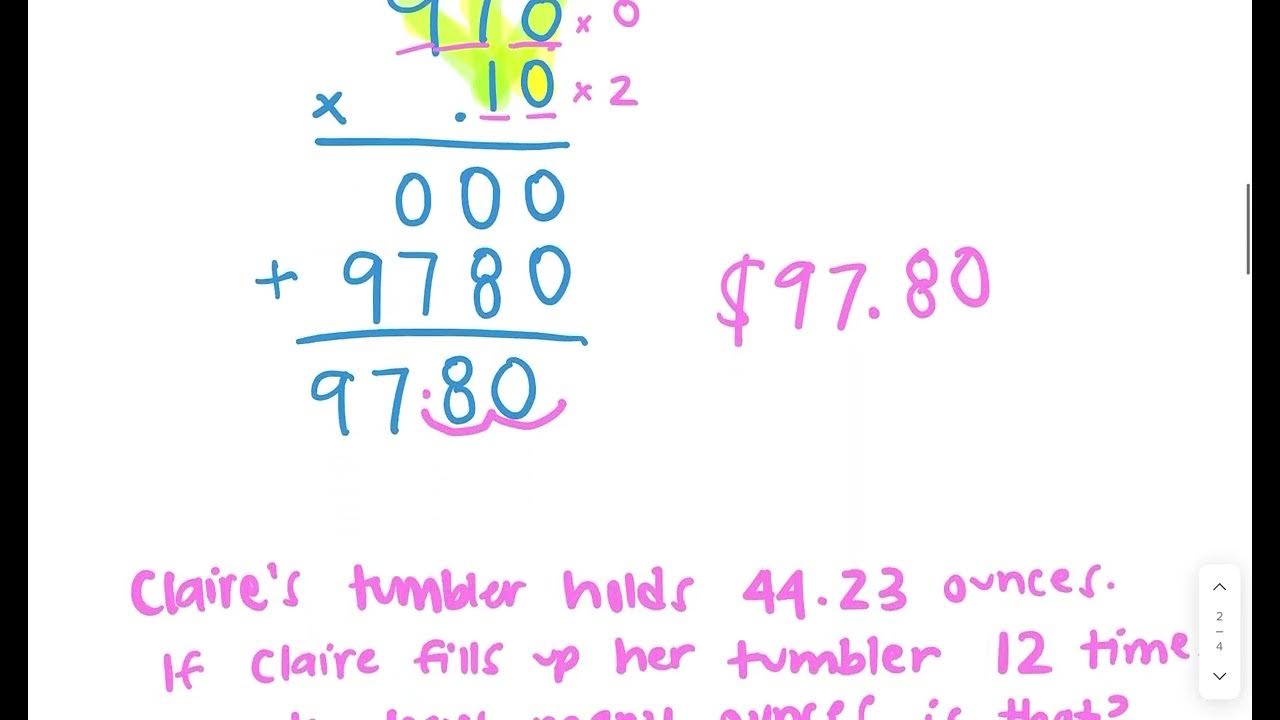 978 × 0
× .10 × 2
000
+ 9780
97.80
$97.80
Claire's tumbler holds 44.23 ounces.
If Claire fills up her tumbler 12 time
how many ounces is that?
2
4